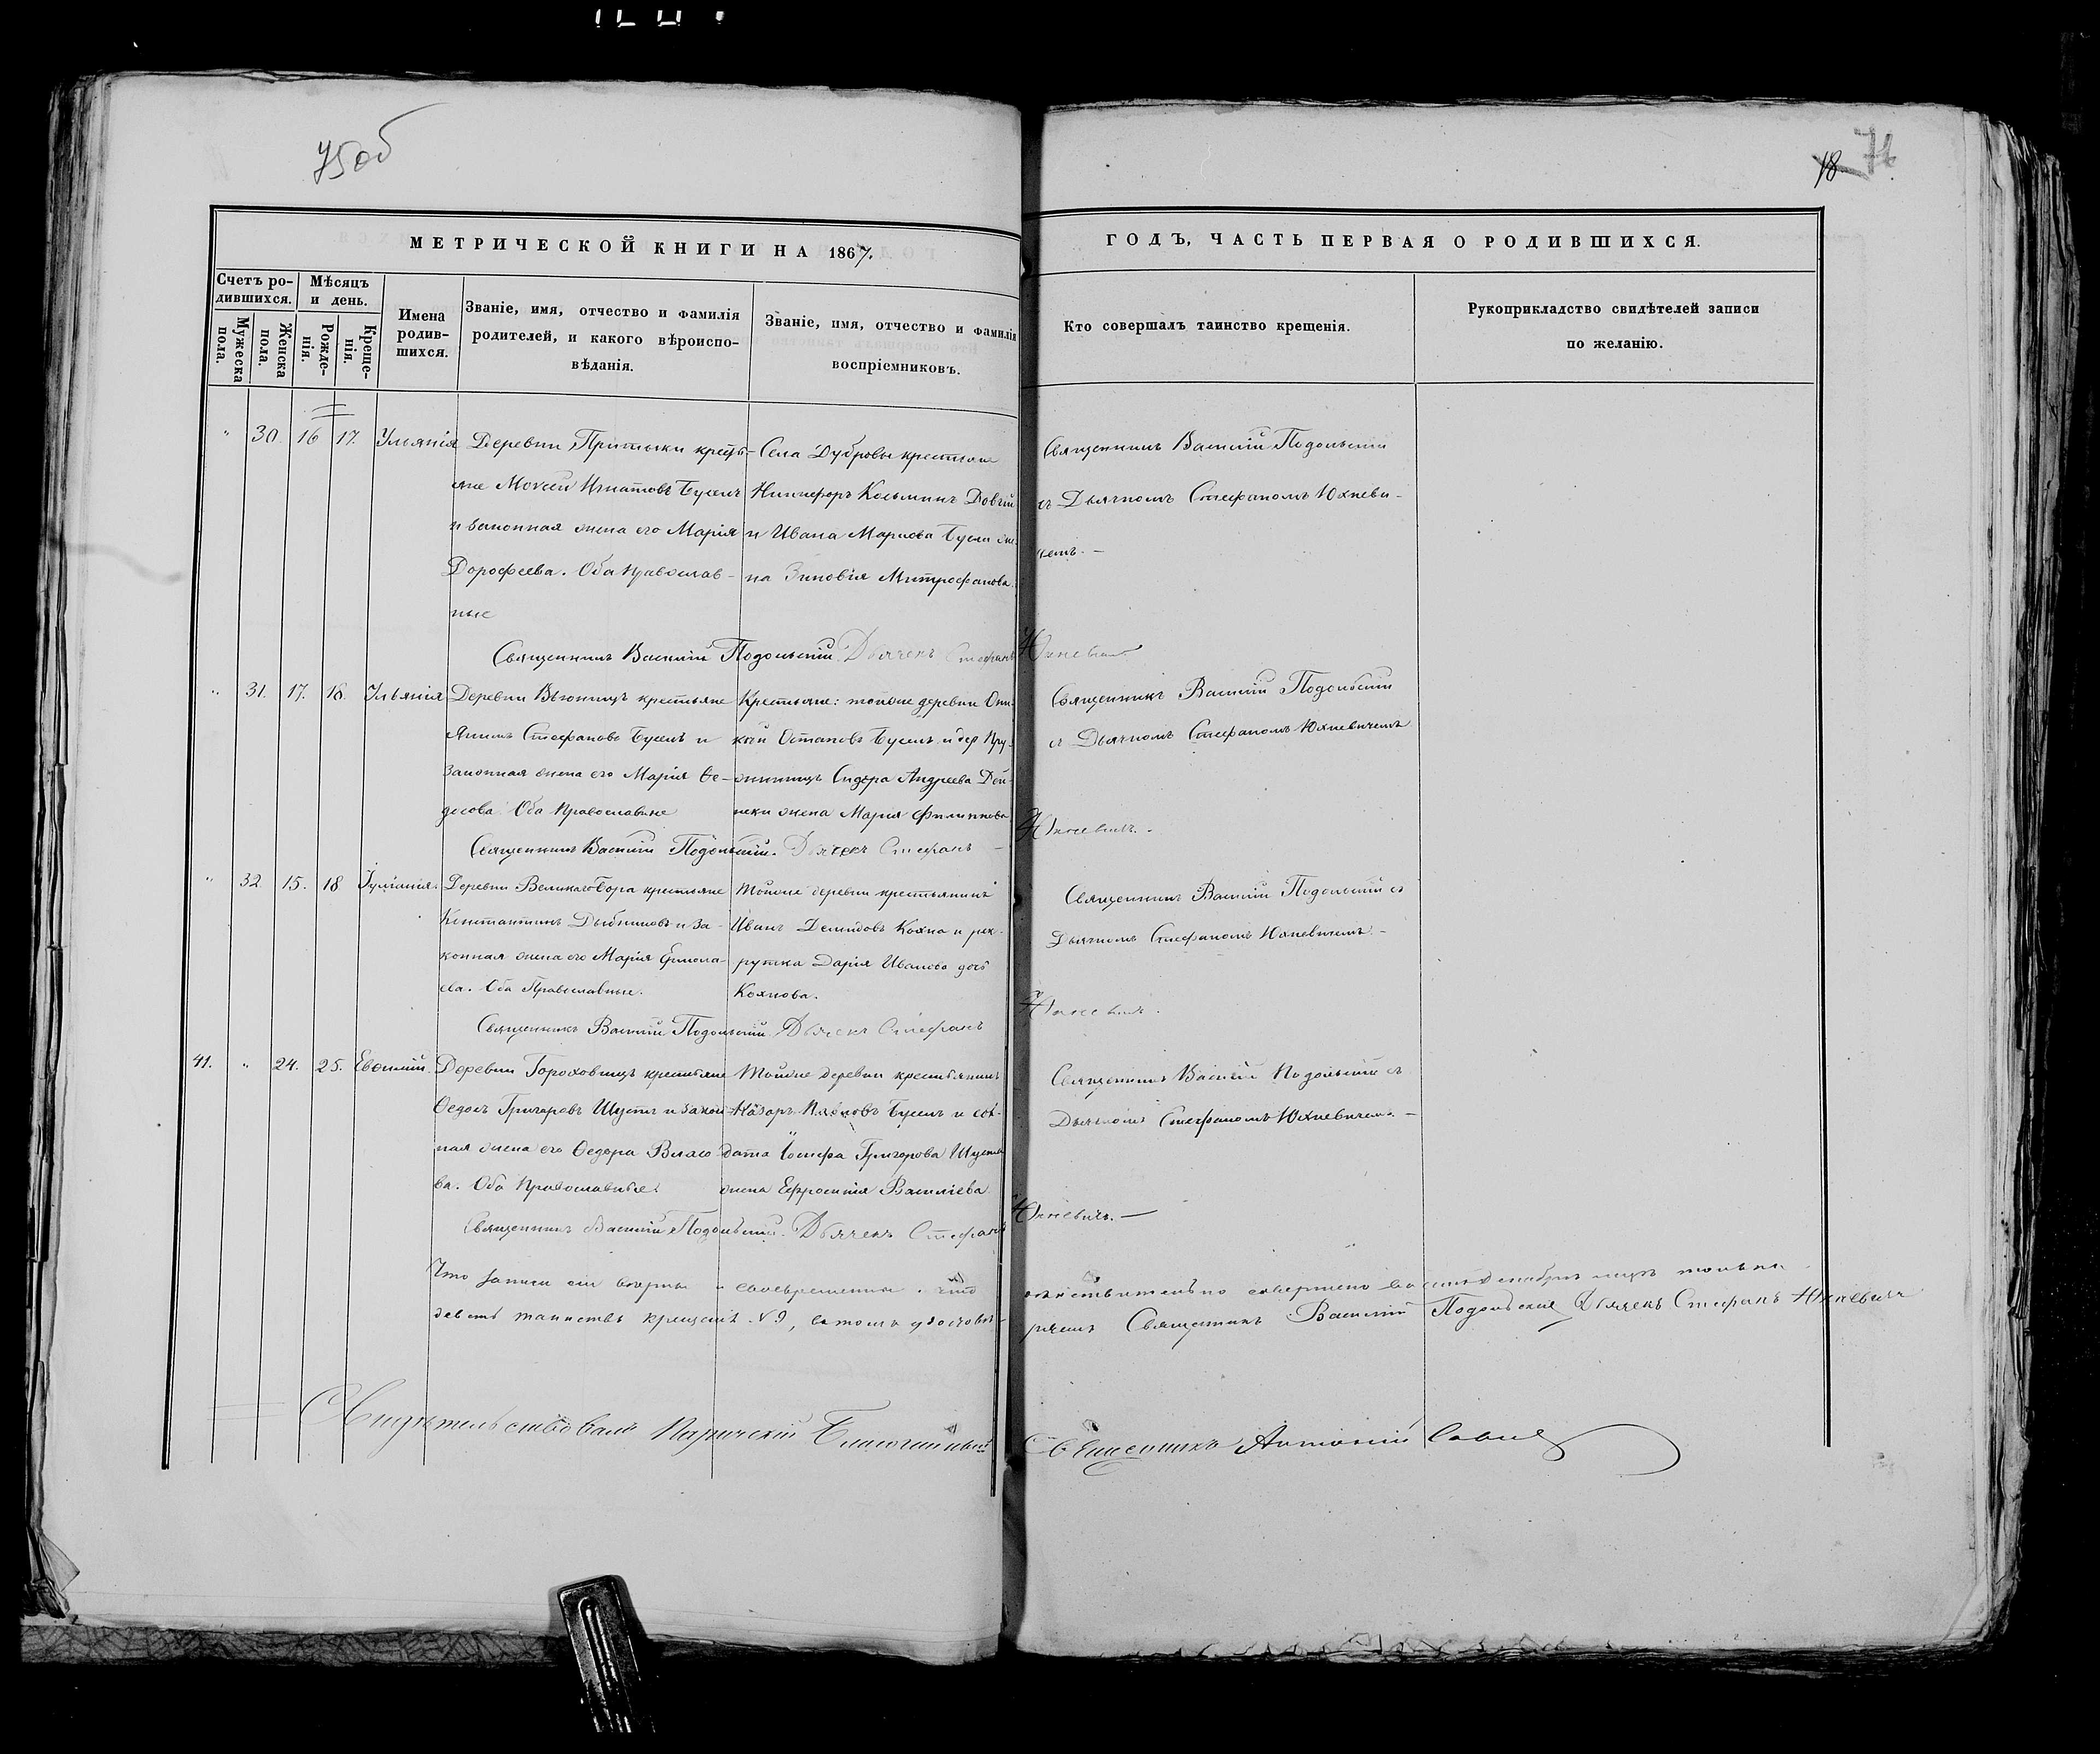 75 об
18 76
МЕТРИЧЕСКОЙ КНИГИ НА 1867.
ГОДЪ, ЧАСТЬ ПЕРВАЯ О РОДИВШИХСЯ.
Счетъ ро-
дившихся.
Мужеска
пола.
Женска
пола.
Мѣсяцъ
и день.
Рожде-
нія.
Креще-
нія.
Имена
родив-
шихся.
Званіе, имя, отчество и фамилія
родителей, и какого вѣроиспо-
вѣданія.
Званіе, имя, отчество и фамилія
воспріемниковъ.
Кто совершалъ таинство крещенія.
Рукоприкладство свидѣтелей записи
по желанію.
" 30. 16 17. Ульянія
Деревни Притыки кресть-
яне Моисей Игнатовъ Бусель
и законная жена его Марія
Дорофеева. Оба Православ-
ные
Села Дубровы крестьяне
Никифоръ Козьминъ
и Ивана Маркова Бусля же-
на Зиновія Митрофанова.
Священникъ Василій Подольскій
съ Дьячкомъ Стефаномъ Юхневи-
чемъ. —
Священникъ Василій Подольскій Дьячекъ Стефанъ Юхневичъ
" 31. 17. 18. Ульянія
Деревни Вьюнищъ крестьяне
Якимъ Стефановъ Бусель и
Законная жена его Марія Ѳе-
досова Оба Православные
Крестьяне: тойже деревни
Остаповъ Бусель и дер Пру-
жинищъ Сидора Андреева Дей-
неки жена Марія Филиппова
Священникъ Василій Подольскій
съ Дьячкомъ Стефаномъ Юхневичемъ
Священникъ Василій Подольскій. Дьячекъ Стефанъ — Юхневичъ. -
" 32 15. 18 Іуліанія.
Деревни Великаго Бора крестьяне
Константинъ и За-
конная жена его Марія Ермола-
ева. Оба Православные.
Тойже деревни крестьянинъ
Иванъ Демидовъ Кохно и рек-
рутка Дарія Иванова дочь
Кохнова.
Священникъ Василій Подольскій съ
Дьячкомъ Стефаномъ Юхневичемъ. -
Священникъ Василій Подольскій Дьячекъ Стефанъ Юхневичъ.
41. " 24. 25. Евѳимій.
Деревни Гороховищъ крестьяне
Ѳедоръ Григоровъ Шустъ и закон-
ная жена его Ѳедора Власо-
ва. Оба Православные.
Тойже деревни крестьянинъ
Назаръ Бусель и сол-
дата Іосифа Григорова Шуста
жена Ефросинія Василіева
Священникъ Василій Подольскій съ
Дьячкомъ Стефаномъ Юхневичемъ. —
Священникъ Василій Подольскій. Дьячекъ Стефанъ Юхневичъ. —
Что записи сіи вѣрны и своевременны. что дѣйствительно совершено въ Декабрѣ только
девять таинствъ крещенія №9, въ томъ удостовѣ-
ряемъ Священникъ Василій Подольскій Дьячекъ Стефанъ Юхневичъ
Свидѣтельствовалъ Паричскій Благочинный Священникъ Антоній